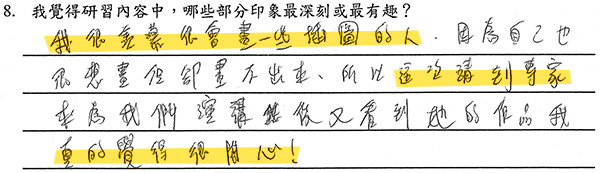 8. 我覺得研習內容中，哪些部分印象最深刻或最有趣？
我很羨慕很會畫一些插圖的人．因為自己也
很想畫但卻畫不出來、所以這次請到專家
來為我們演講能做又看到她的作品我
真的覺得很開心！